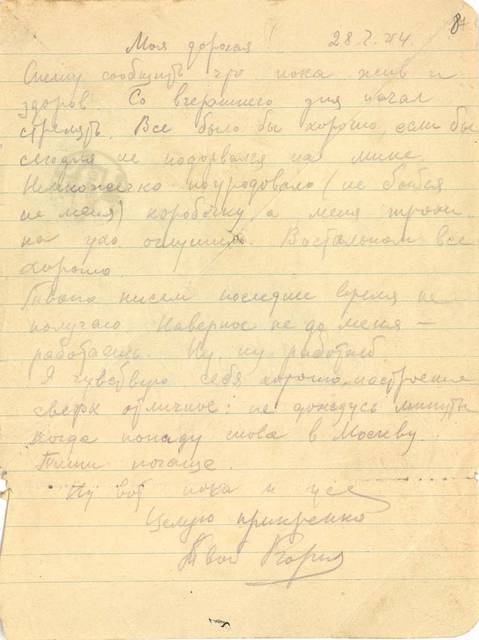 Моя дорогая! 28.7.44. 8
Спешу сообщить что пока жив и
здоров. Со вчерашнего дня начал
стрелять. Все было бы хорошо, если бы
сегодня не подорвался на мине.
Немножечко поуродовало (не бойся
не меня) коробочку а меня трохи
на ухо оглушило. В остальном все
хорошо.
Твоих писем последнее время не
получаю. Наверное не до меня –
работаешь. Ну, ну работай.
Я чувствую себя хорошо, настроение
сверх отличное: не дождусь минуты
когда попаду снова в Москву.
Пиши почаще.
Ну вот пока и все
Целую крепко
Твой